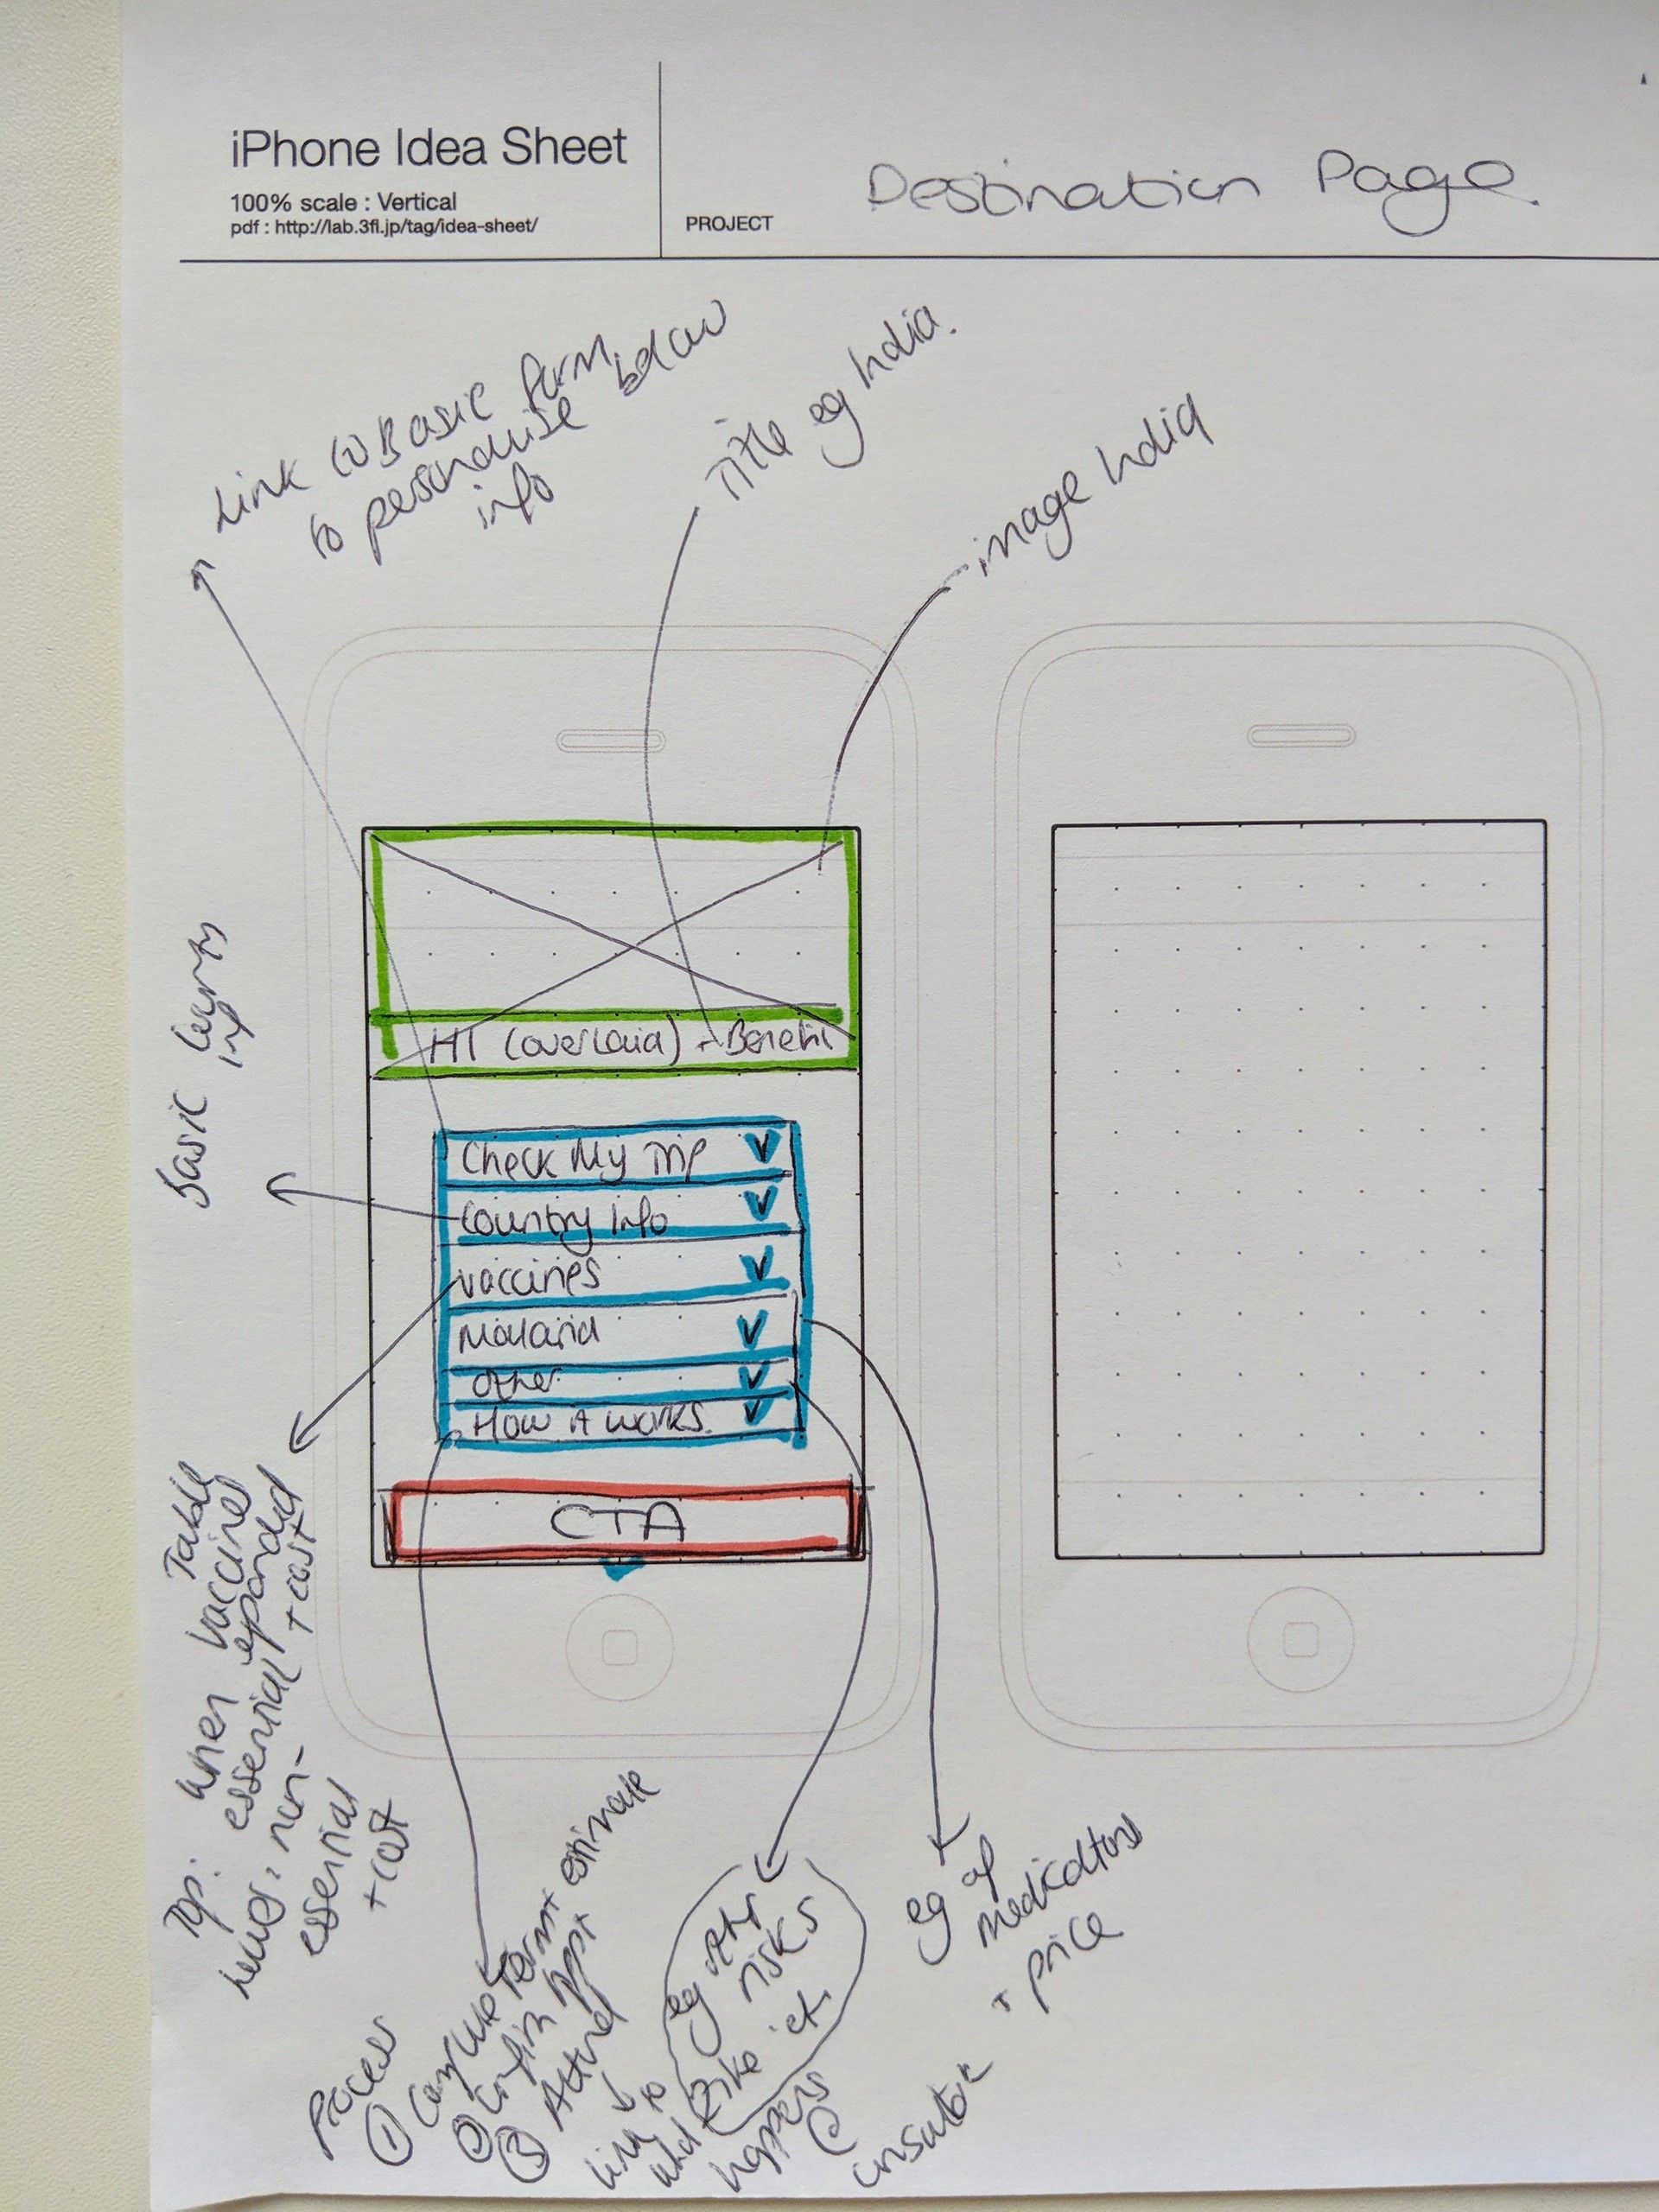 iPhone Idea Sheet
100% scale : Vertical
pdf : http://lab.3fl.jp/tag/idea-sheet/
PROJECT
Destination Page
Link to Basic form
to personalise below
info
Title eg India.
image India
H1 (overlaid) + Benefit
Check My Trip
Country Info
vaccines
Malaria
Other
How it works.
CTA
Basic Country
inf
Table
when vaccines expanded
Top: essential + cost
lower: non-
essential
+ cost
Process
① Complete Form + estimate
② Confirm Appt
③ Attend
link to
what happens @
consultatn
eg othr
risks
Zika etc.
eg of
medications
+ price